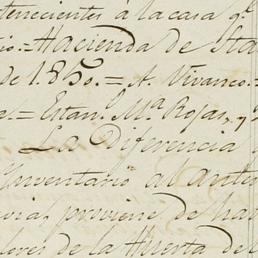 tenecientes á la casa q.e
Hacienda de Sta
de 1850.= A. Vivanco.=
= Estan.o M.a Rojas, y
La Diferencia
Ynventario al ante
proviene de ha
de la Huerta de